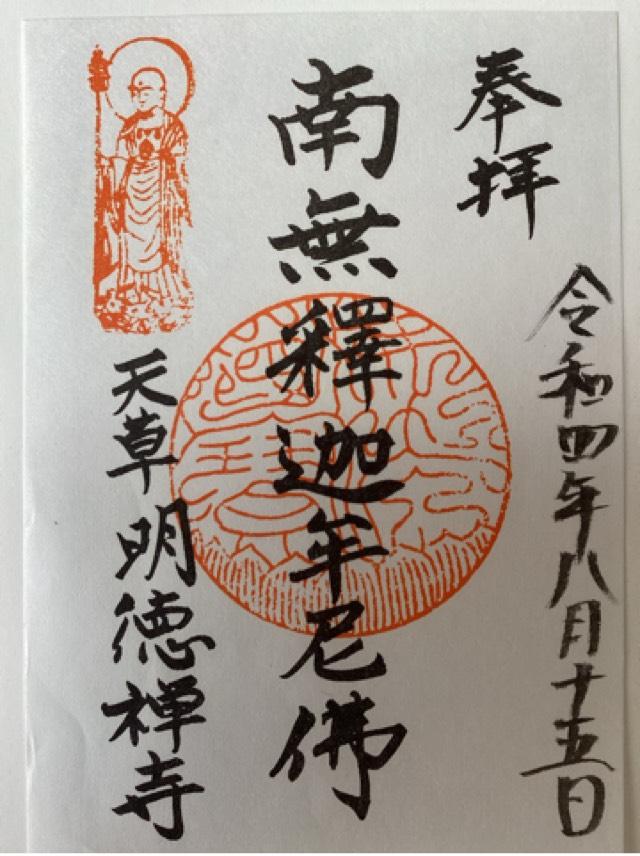 奉拝
令和四年八月十五日
南無釋迦年尼佛
天草明徳禅寺